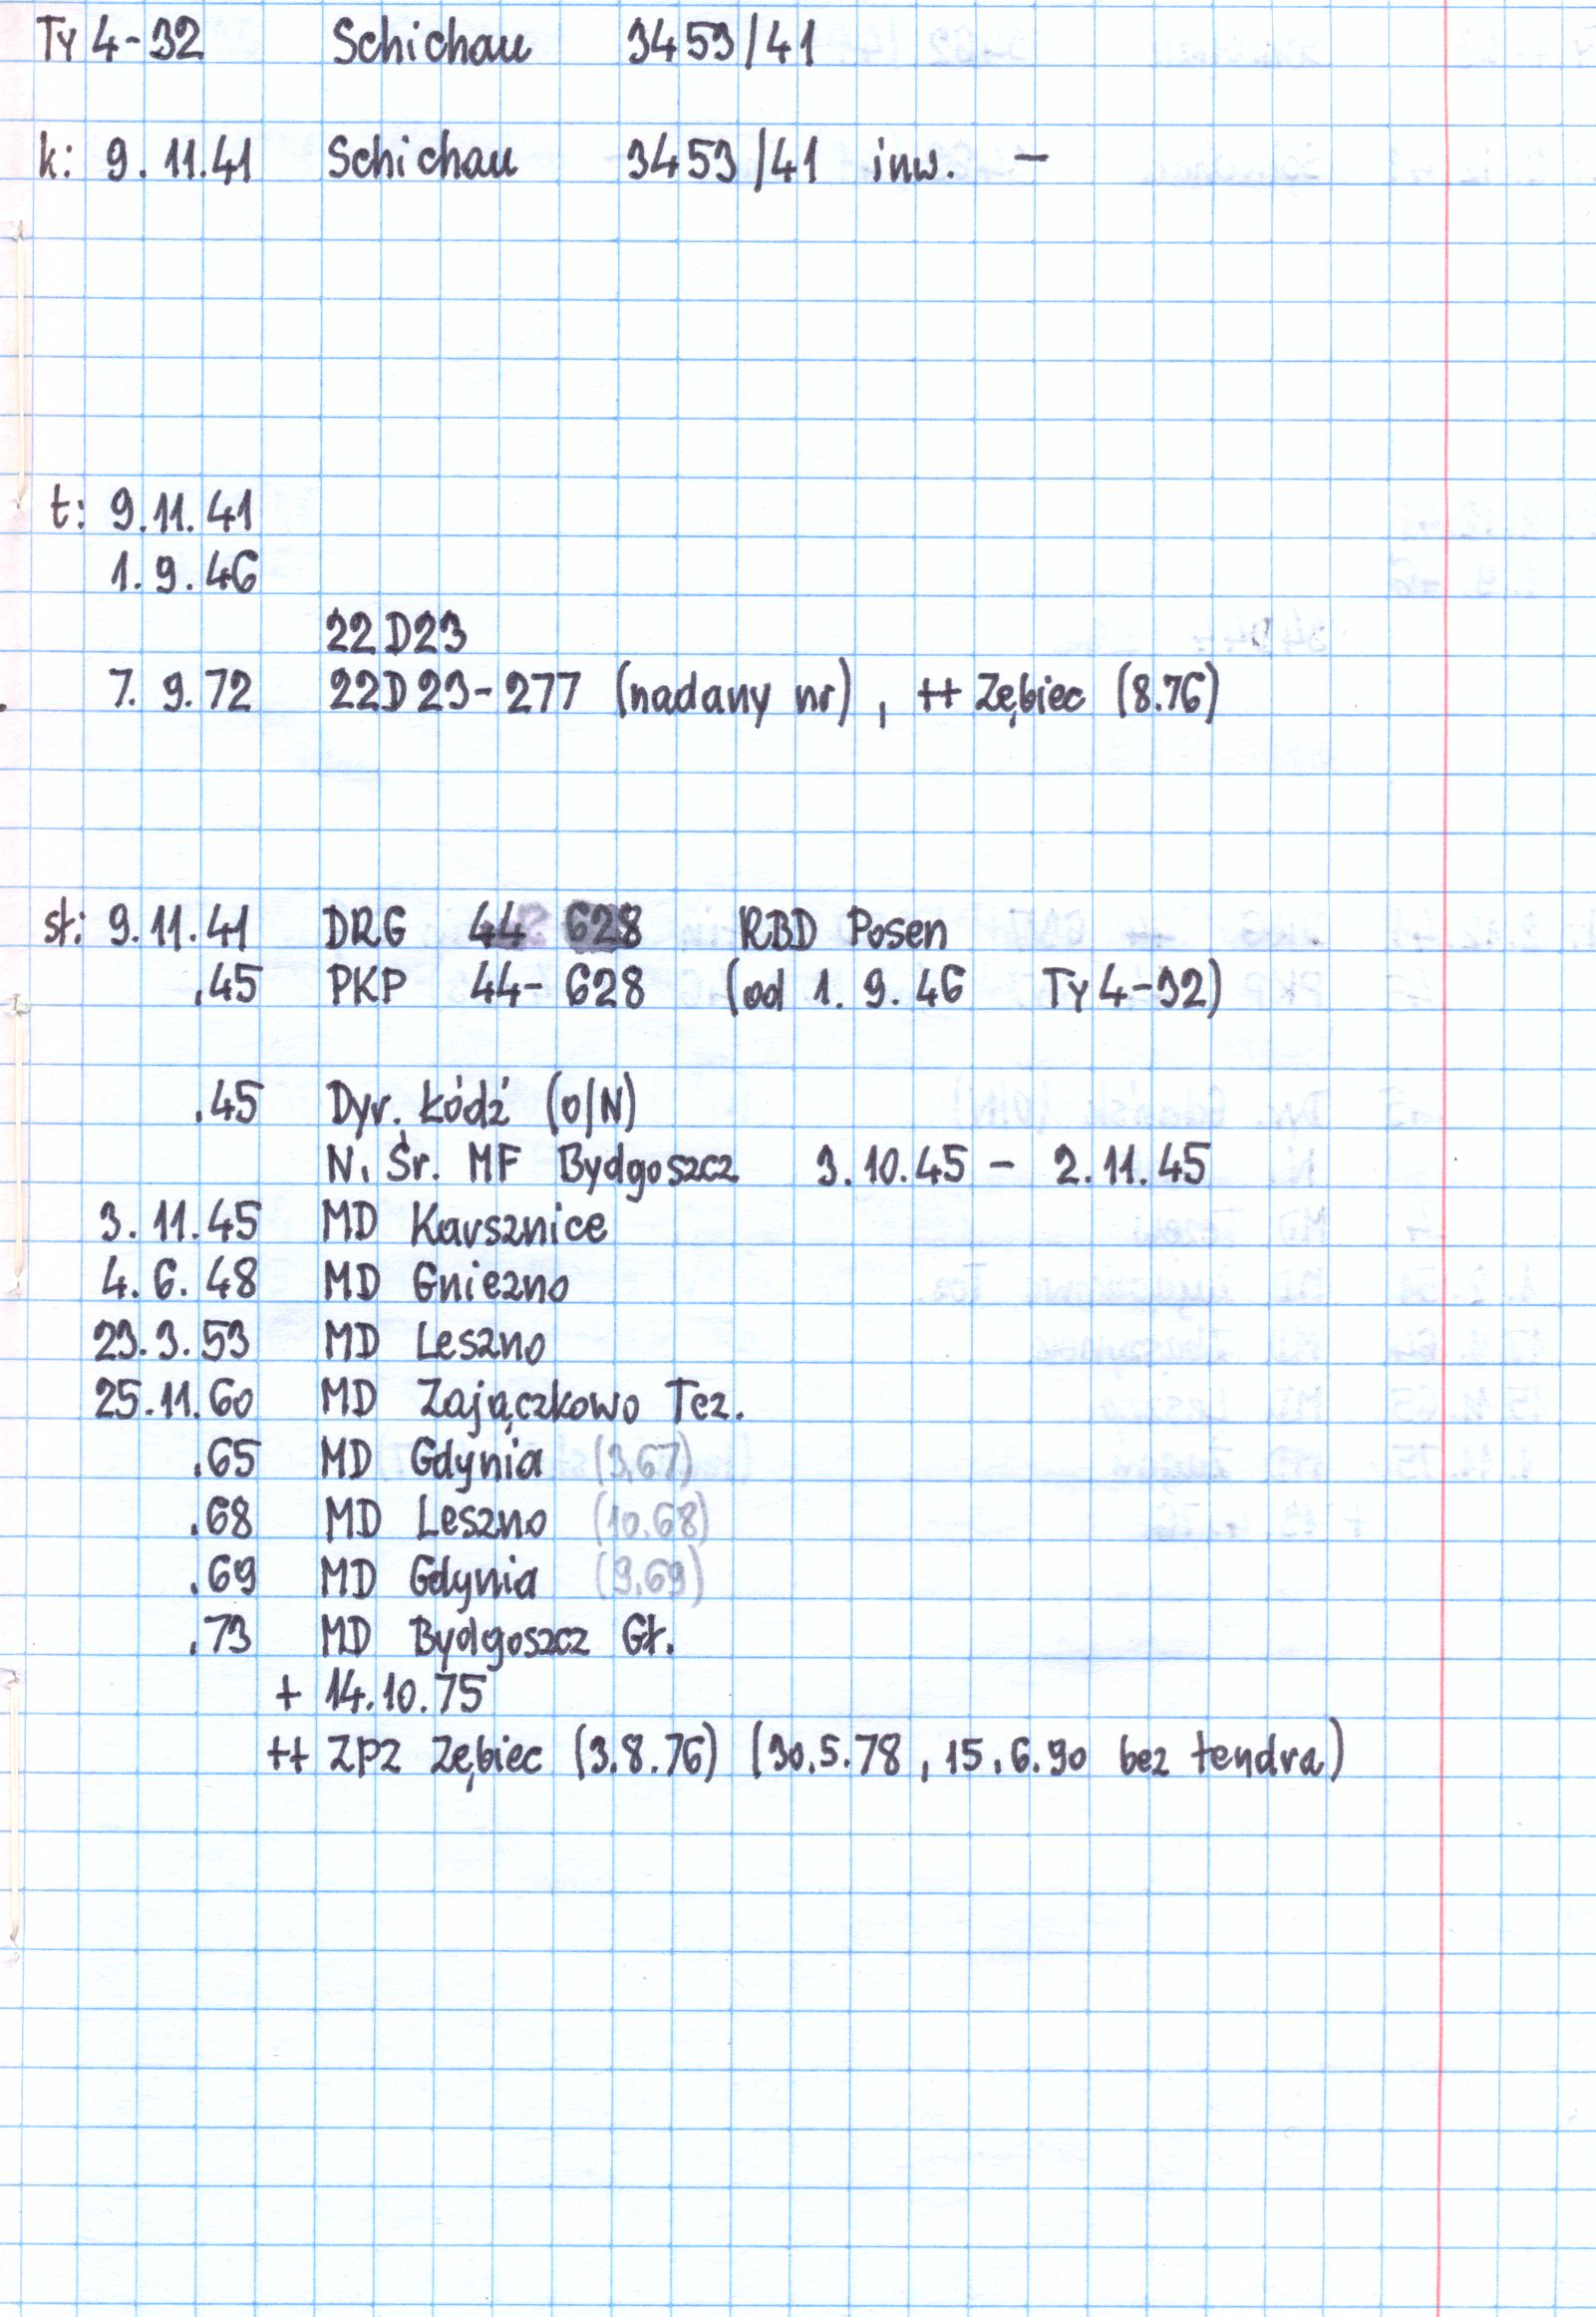 Ty 4-32 Schichau 3453/41
k: 9.11.41 Schichau 3453/41 inw. –
t: 9.11.41
1.9.46
22D23
7.9.72 22D23-277 (nadany nr), ++ Zębiec (8.76)
st: 9.11.41 DRG 44 628 RBD Posen
.45 PKP 44-628 (od 1.9.46 Ty 4-32)
.45 Dyr. Łódź (o/N)
N. Śr. MF Bydgoszcz 3.10.45 – 2.11.45
3.11.45 MD Karsznice
4.6.48 MD Gniezno
23.3.53 MD Leszno
25.11.60 MD Zajączkowo Tcz.
.65 MD Gdynia (3.67)
.68 MD Leszno (10.68)
.69 MD Gdynia (9.69)
.73 MD Bydgoszcz Gł.
+ 14.10.75
++ ZPZ Zębiec (3.8.76) (30.5.78, 15.6.90 bez tendra)